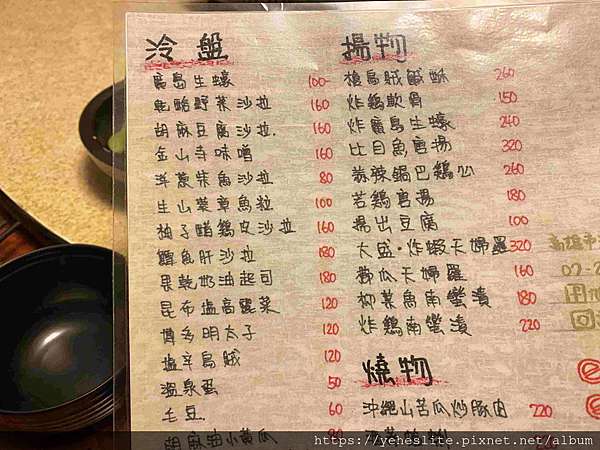 冷盤
廣島生蠔 100
乾醋野菜沙拉 160
胡麻豆腐沙拉 160
金山寺味噌 160
洋蔥柴魚沙拉 80
生山葵章魚粒 100
柚子醋雞皮沙拉 160
鱈魚肝沙拉 180
果乾奶油起司 180
昆布塩高麗菜 120
博多明太子 120
塩辛烏賊 120
溫泉蛋 50
毛豆 60
胡麻油小黃瓜 80
揚物
花烏賊鹹酥 260
炸鷄軟骨 150
炸廣島生蠔 240
比目魚唐揚 320
椒辣鍋巴鷄公 260
若鷄唐揚 180
揚出豆腐 100
大盛·炸蝦天婦羅 320
櫛瓜天婦羅 160
柳葉魚南蠻漬 180
炸鷄南蠻漬 220
燒物
沖繩山苦瓜炒豚肉 220
高雄市
07-2
回
https://yeheslite.pixnet.net/album